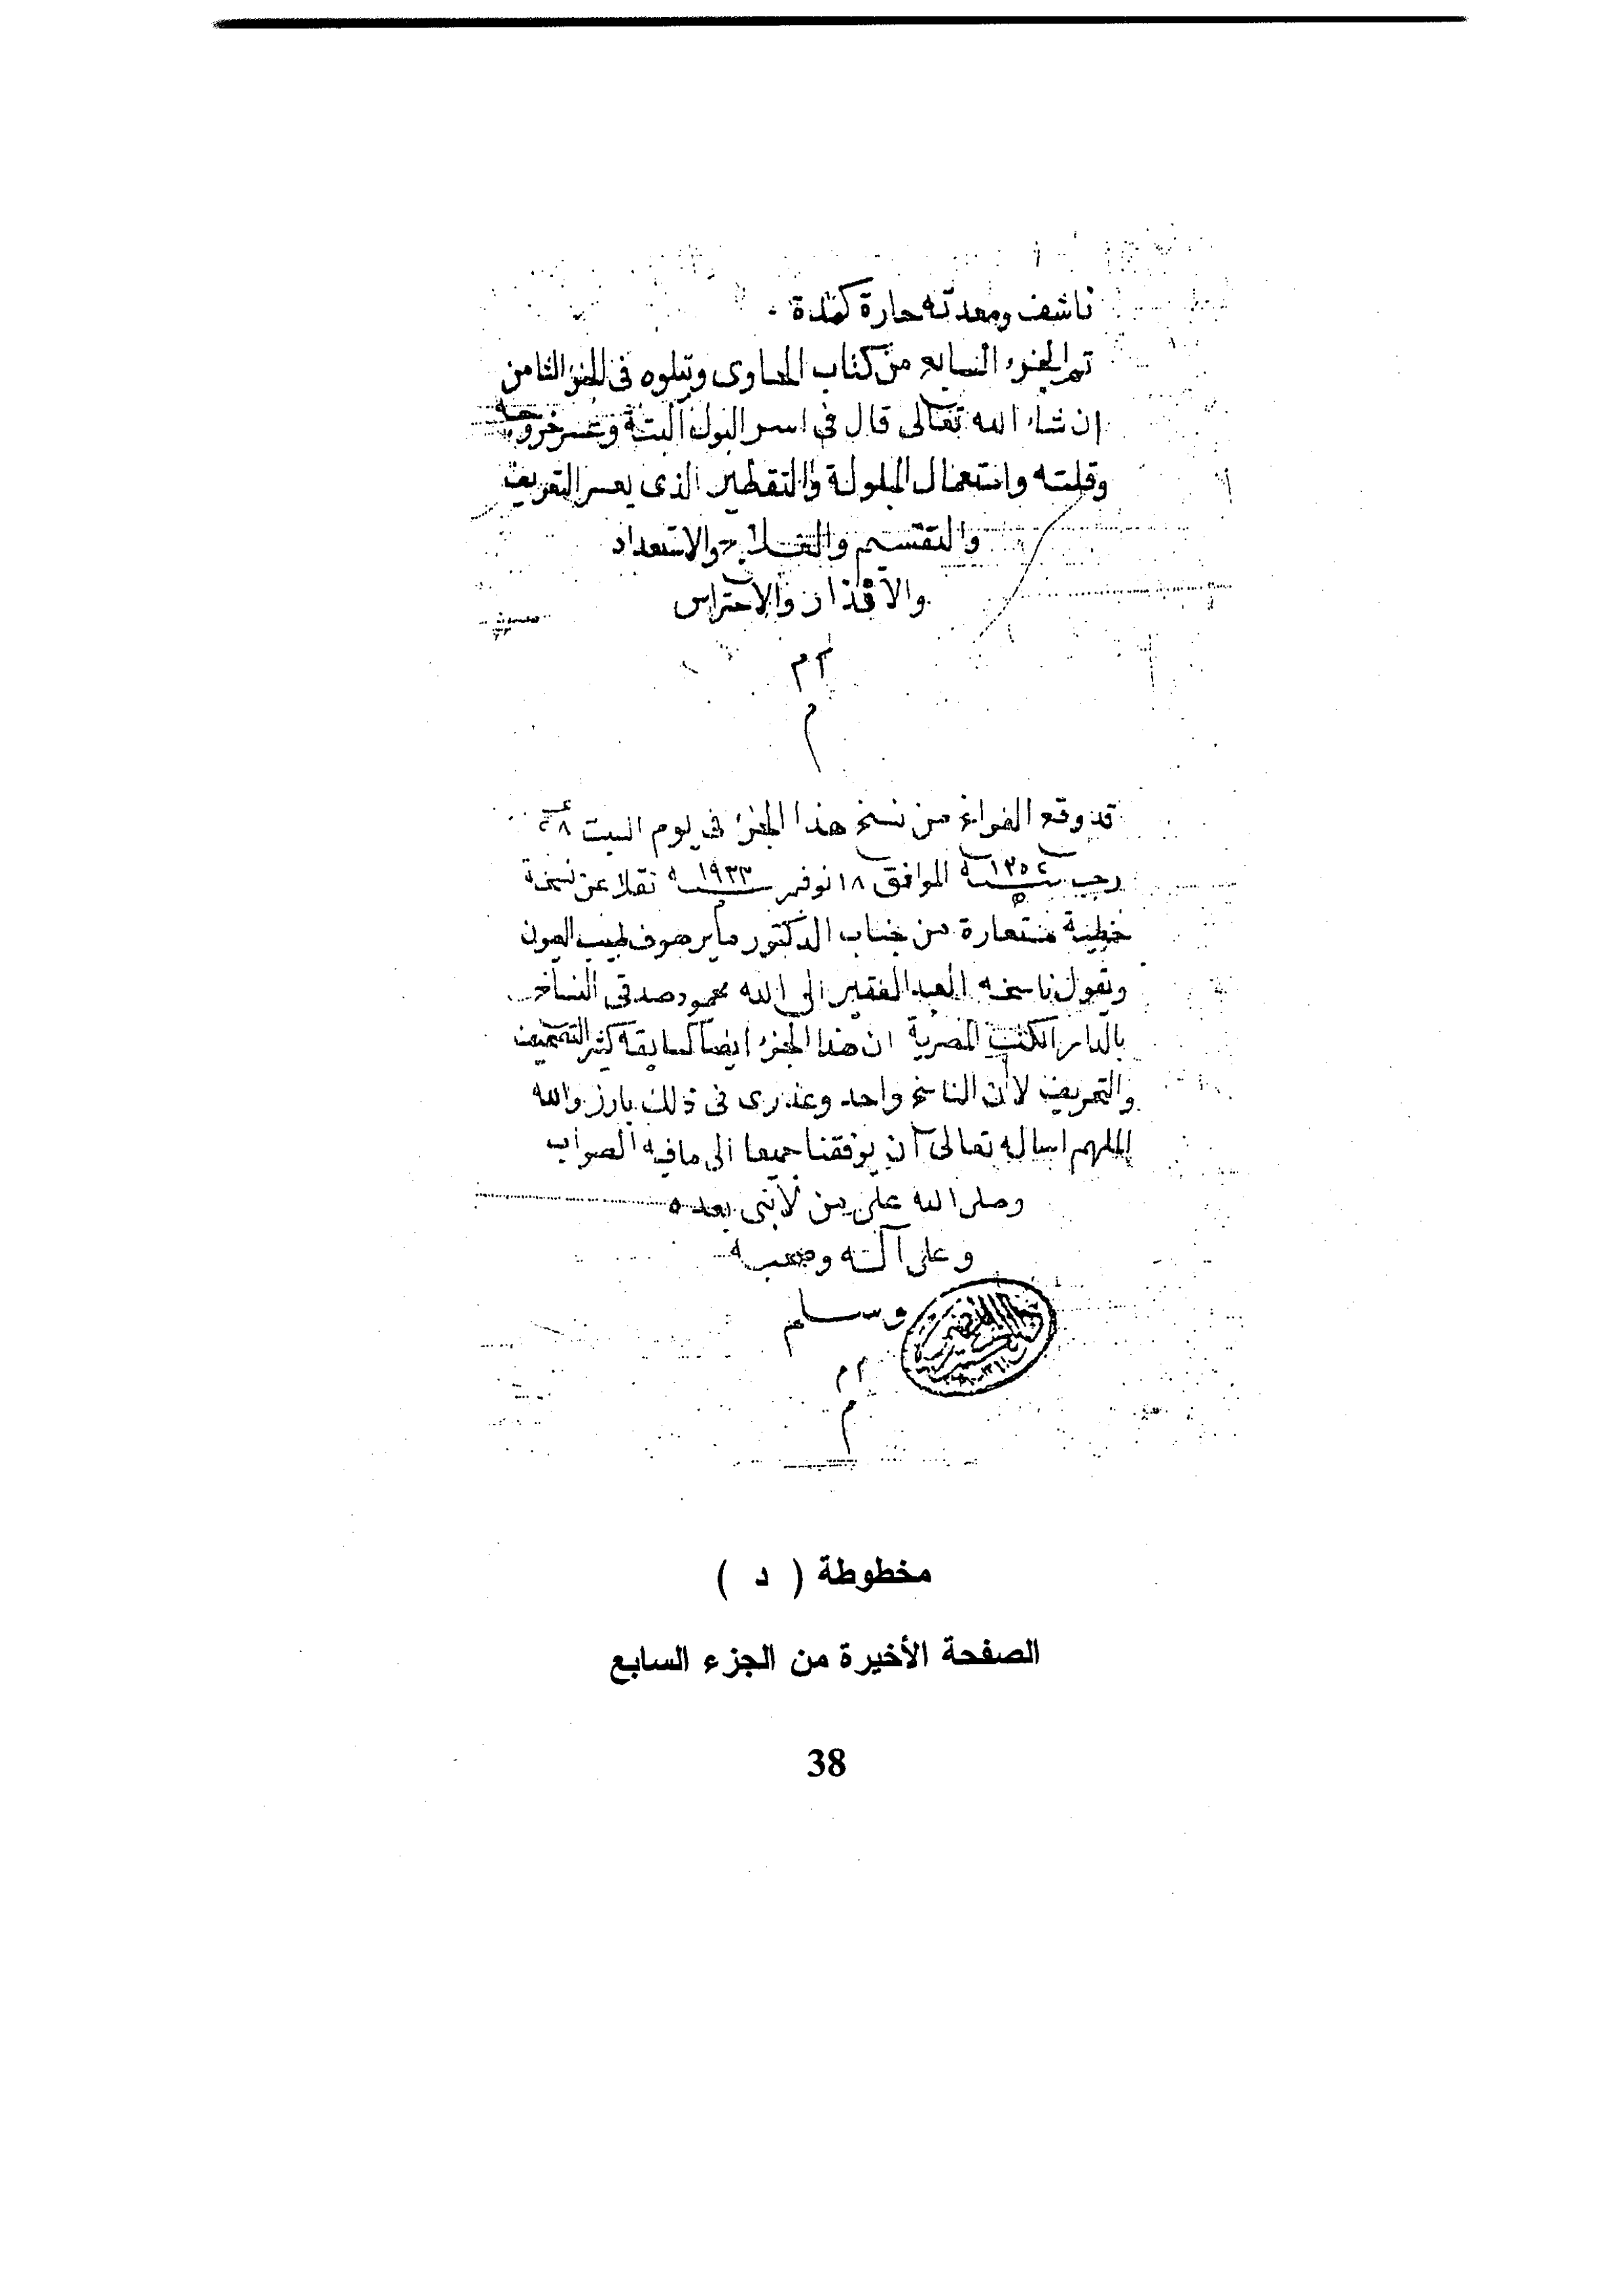 ناشف ومعدته حارة كمدة .
تم الجزء السابع من كتاب الحاوى ويتلوه فى الجزء الثامن
ان شاء الله تعالى قال فى اسر البول البتة وعسر خروجه
وقلته واستعمال المبلولة والتقطير الذى يعسر التعريف
والتقسيم والعلاج والاستعداد
والانذار والاحتراس
م م
م
قد وقع الفراغ من نسخ هذا الجزء فى يوم السبت
رجب سنة ١٣٥٢ الموافق ١٨ نوفمبر سنة ١٩٣٣ نقلا عن نسخة
خطية مستعارة من جناب الدكتور مايرهوف طبيب العيون
ويقول ناسخه العبد الفقير الى الله محمود صدقى النساخ
بالدار الكتب المصرية ان هذا الجزء ايضا كسابقه كثير التصحيف
والتحريف لأن الناسخ واحد وعذرى فى ذلك بارز والله
الملهم اساله تعالى أن يوفقنا جميعا الى مافيه الصواب
وصلى الله على من لا نبى بعده
وعلى آله وصحبه
وسلم
م م
م
مخطوطة ( د )
الصفحة الأخيرة من الجزء السابع
38